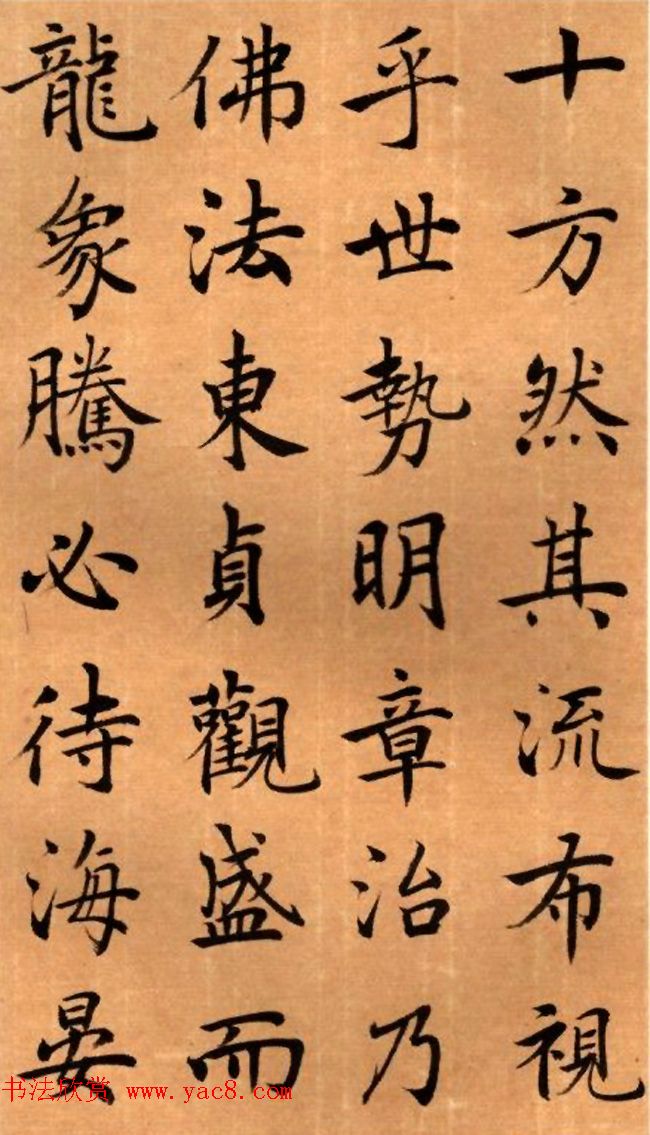 十方然其流布視
乎世勢明章治乃
佛法東貞觀盛而
龍象騰必待海晏
书法欣赏 www.yac8.com